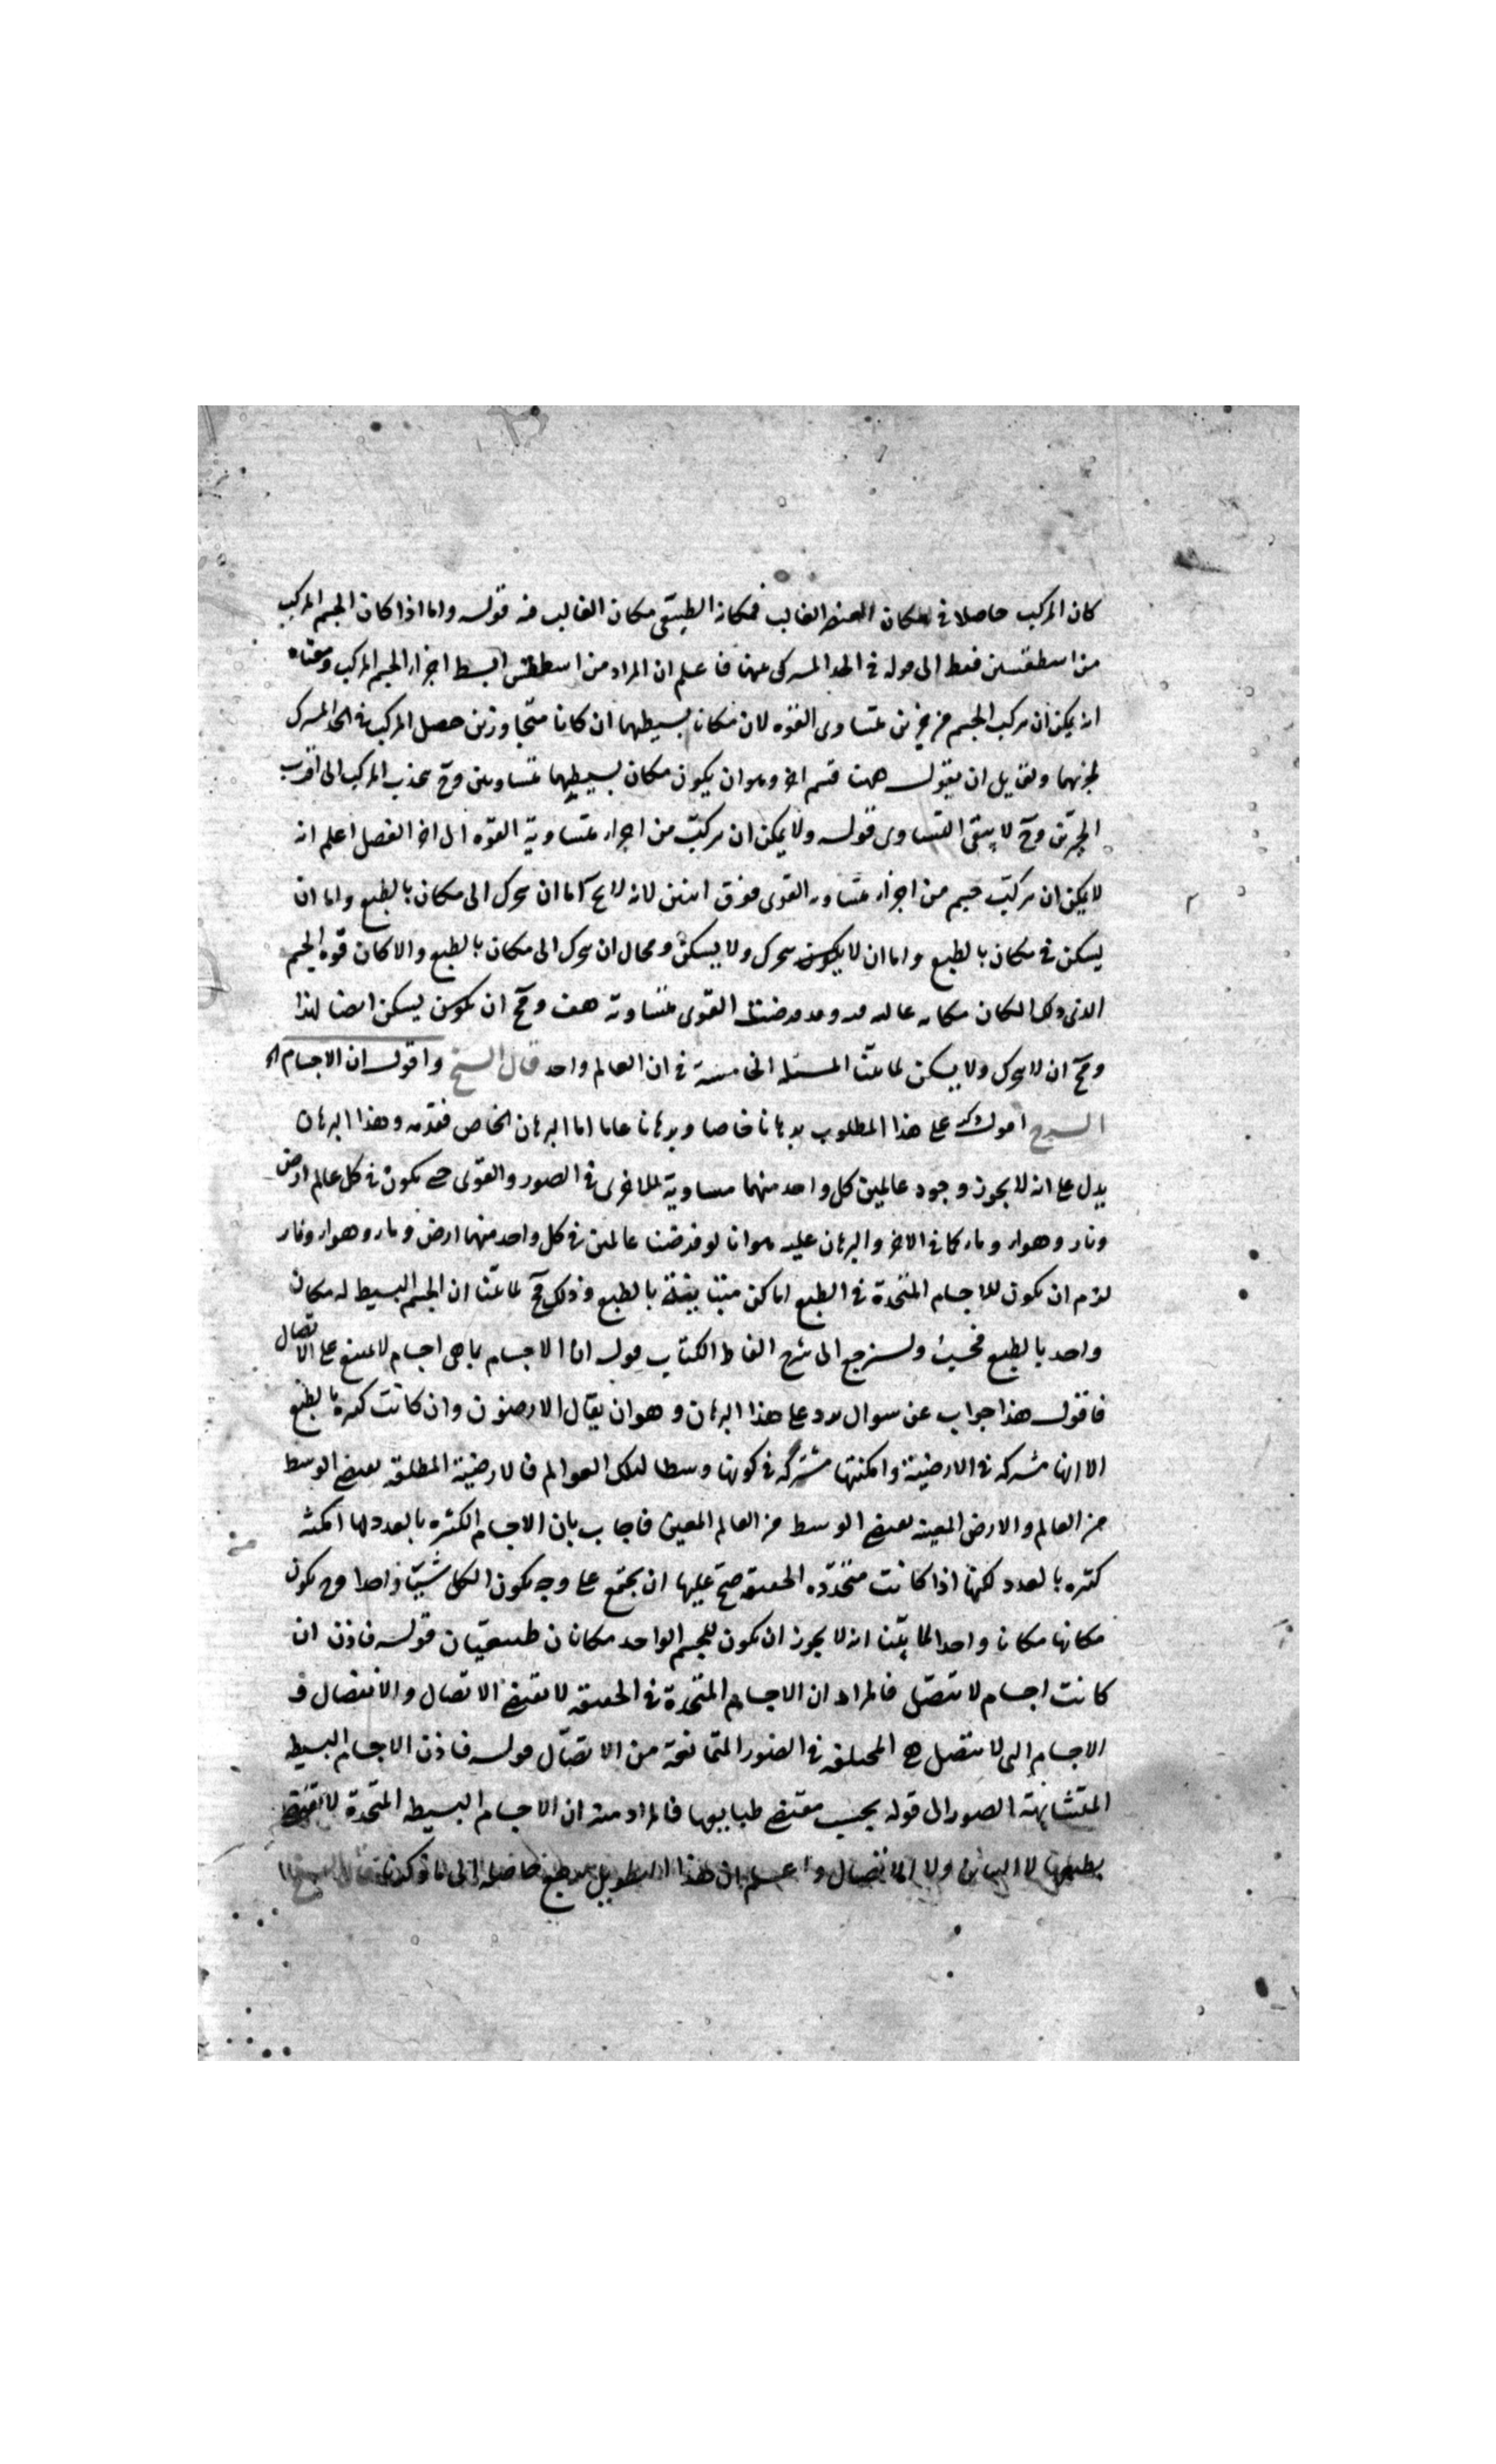 كان المركب حاصلا في مكان العنصر الغالب فمكانه الطبيعي مكان الغالب منه قوله واما اذا كان الجسم المركب
من اسطقسين فقط الى قوله في الحد المشترك بينهما فاعلم ان المراد من اسطقس ابسط اجزاء الجسم المركب ومعناه
انه يمكن ان يركب الجسم من جزئين متساوى القوه لان مكانا بسيطيهما ان كانا متجاورين حصل المركب في الحد المشترك
لجزئيهما ولقايل ان يقول ههنا قسم اخر وهو ان يكون مكان بسيطيهما متساويين وح يجذب المركب الى اقرب
الجزئين وح لا يبقى التساوى قوله ولا يمكن ان يركب من اجزاء متساوية القوه الى اخر الفصل اعلم انه
لا يمكن ان يركب جسم من اجزاء متساويه القوى فوق اثنين لانه لا يخ اما ان يتحرك الى مكان بالطبع واما ان
يسكن في مكان بالطبع واما ان لا يتحرك ولا يسكن ومحال ان يتحرك الى مكان بالطبع والا كان قوة الجسم
الذى ذلك المكان مكانه غالبه فيه وقد فرضنا القوى متساوية هف ومح ان يسكن ايضا لهذا
ومح ان لا يتحرك ولا يسكن لما بينا المسئله الخامسة في ان العالم واحد قال الشيخ واقول ان الاجسام الخ
الشرح اقول ذكر على هذا المطلوب برهانا خاصا وبرهانا عاما اما البرهان الخاص فقدمه وهذا البرهان
يدل على انه لا يجوز وجود عالمين كل واحد منهما مساوية للاخرى في الصور والقوى حتى يكون في كل عالم ارض
ونار وهواء وماء كما في الاخر والبرهان عليه هو انا لو فرضنا عالمين في كل واحد منهما ارض وماء وهواء ونار
لزم ان يكون للاجسام المتحدة في الطبع اماكن متباينة بالطبع وذلك مح لما بينا ان الجسم البسيط له مكان
واحد بالطبع فحسب ولنرجع الى شرح الفاظ الكتاب قوله ان الاجسام بما هى اجسام لا يمتنع على الاتصال
فاقول هذا جواب عن سوال يرد على هذا البرهان وهو ان يقال الارضون وان كانت كثيرة بالطبع
الا انها مشتركه في الارضية وامكنتها مشتركه في كونها وسطا لتلك العوالم فالارضية المطلقه تقتضي الوسط
من العالم والارض المعينه تقتضي الوسط من العالم المعين فاجاب بان الاجسام الكثيره بالعدد لها امكنه
كثيره بالعدد لكنها اذا كانت متحده الحقيقه صح عليها ان يجتمع على وجه يكون الكل شيئا واحدا وح يكون
مكانها مكانا واحدا لما بينا انه لا يجوز ان يكون للجسم الواحد مكانان طبيعيان قوله فاذن ان
كانت اجسام لا تتصل فالمراد ان الاجسام المتحدة في الحقيقه لا تقتضي الاتصال والانفصال ف
الاجسام التى لا تتصل هى المختلفه في الصور المتمانعة من الاتصال قوله فاذن الاجسام البسيطه
المتشابهة الصور الى قوله بحسب مقتضى طبايعها فالمراد منه ان الاجسام البسيطه المتحدة لا تقتضي
بطبعها لا التباين ولا الانفصال واعلم ان هذا التطويل يرجع حاصله الى ما ذكرنا قال الشيخ